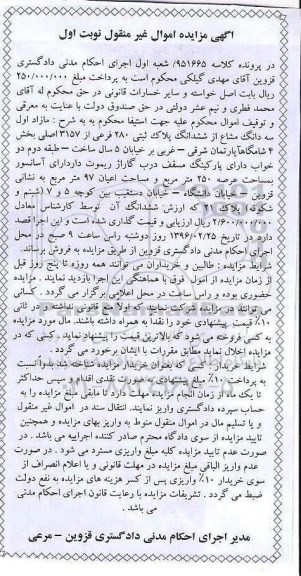 آگهی مزایده اموال غیر منقول نوبت اول
در پرونده کلاسه ۹۵۱۶۶۵/ شعبه اول اجرای احکام مدنی دادگستری
قزوین آقای مهدی گیلکی محکوم است به پرداخت مبلغ ۲۵۰/۰۰۰/۰۰۰
ریال بابت اصل خواسته و سایر خسارات قانونی در حق محکوم له آقای
محمد فطری و نیم عشر دولتی در حق صندوق دولت با عنایت به معرفی
و توقیف اموال محکوم علیه جهت استیفا محکوم به به شرح : مازاد اول
سه دانگ مشاع از ششدانگ پلاک ثبتی ۲۸۰ فرعی از ۳۱۵۷ اصلی بخش
۴ شامگاهاآپارتمان شرقی – غربی بر خیابان ۵ سال ساخت – طبقه دوم دو
خواب دارای پارکینگ مسقف درب گاراژ ریموت داردارای آسانسور
بمساحت عرصه ۲۵۰ متر مربع و مساحت اعیان ۹۷ متر مربع به نشانی
قزوین – خیابان دانشگاه – خیابان دستغیب بین کوچه ۵ و ۷ (شبنم و
شکوفه) پلاک ۲۱ که ارزش ششدانگ آن توسط کارشناس معادل
۲/۶۰۰/۰۰۰/۰۰۰ ریال ارزیابی و قیمت گذاری شده است و این اجرا قصد
دارد در تاریخ ۱۳۹۶/۰۲/۲۵ روز دوشنبه راس ساعت ۹ صبح در محل
اجرای احکام مدنی دادگستری قزوین از طریق مزایده به فروش برساند.
شرایط مزایده : طالبین و خریداران می توانند همه روزه تا پنج روز قبل
از زمان مزایده از اموال فوق با هماهنگی این اجرا بازدید نمایند . مزایده
حضوری بوده و راس ساعت در محل اعلامی برگزار می گردد . کسانی
می توانند در مزایده شرکت نمایند که اولا منع قانونی نداشته و در ثانی
۱۰٪ قیمت پیشنهادی خود را نقدا به همراه داشته باشند. مال مورد مزایده
به کسی فروخته می شود که بالاترین قیمت را پیشنهاد نماید . کسی که در
مزایده اخلال نماید مطابق مقررات با ایشان برخورد می گردد .
شرایط خریدار : کسی که بعنوان خریدار مزایده شناخته شد بدوا نسبت
به پرداخت ۱۰٪ مبلغ پیشنهادی به صورت نقدی اقدام و سپس حداکثر
تا یک ماه از زمان انجام مزایده مهلت دارد تا مابقی مبلغ مزایده را به
حساب سپرده دادگستری واریز نمایند. انتقال سند در اموال غیر منقول
و یا تسلیم مال در اموال منقول منوط به واریز بهای مزایده و همچنین
تایید مزایده از سوی دادگاه محترم صادر کننده اجراییه می باشد . در
صورت عدم تایید مزایده کلیه مبلغ واریزی مسترد می شود . در صورت
عدم واریز الباقی مبلغ مزایده در مهلت قانونی و یا اعلام انصراف از
سوی خریدار ۱۰٪ واریزی پس از کسر هزینه های مزایده به نفع دولت
ضبط می گردد . تشریفات مزایده با رعایت قانون اجرای احکام مدنی
می باشد .
مدیر اجرای احکام مدنی دادگستری قزوین – مرعی